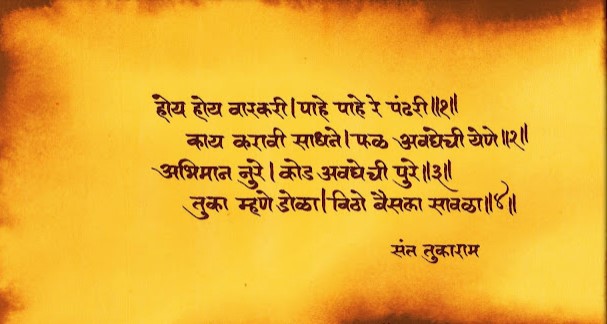 होय होय वारकरी।पाहे पाहे रे पंढरी॥१॥
काय करावी साधने।फळ अवघेची येणे॥२॥
अभिमान नुरे।कोड अवघेची पुरे॥३॥
तुका म्हणे डोळा।विठो बैसला सावळा॥४॥
संत तुकाराम